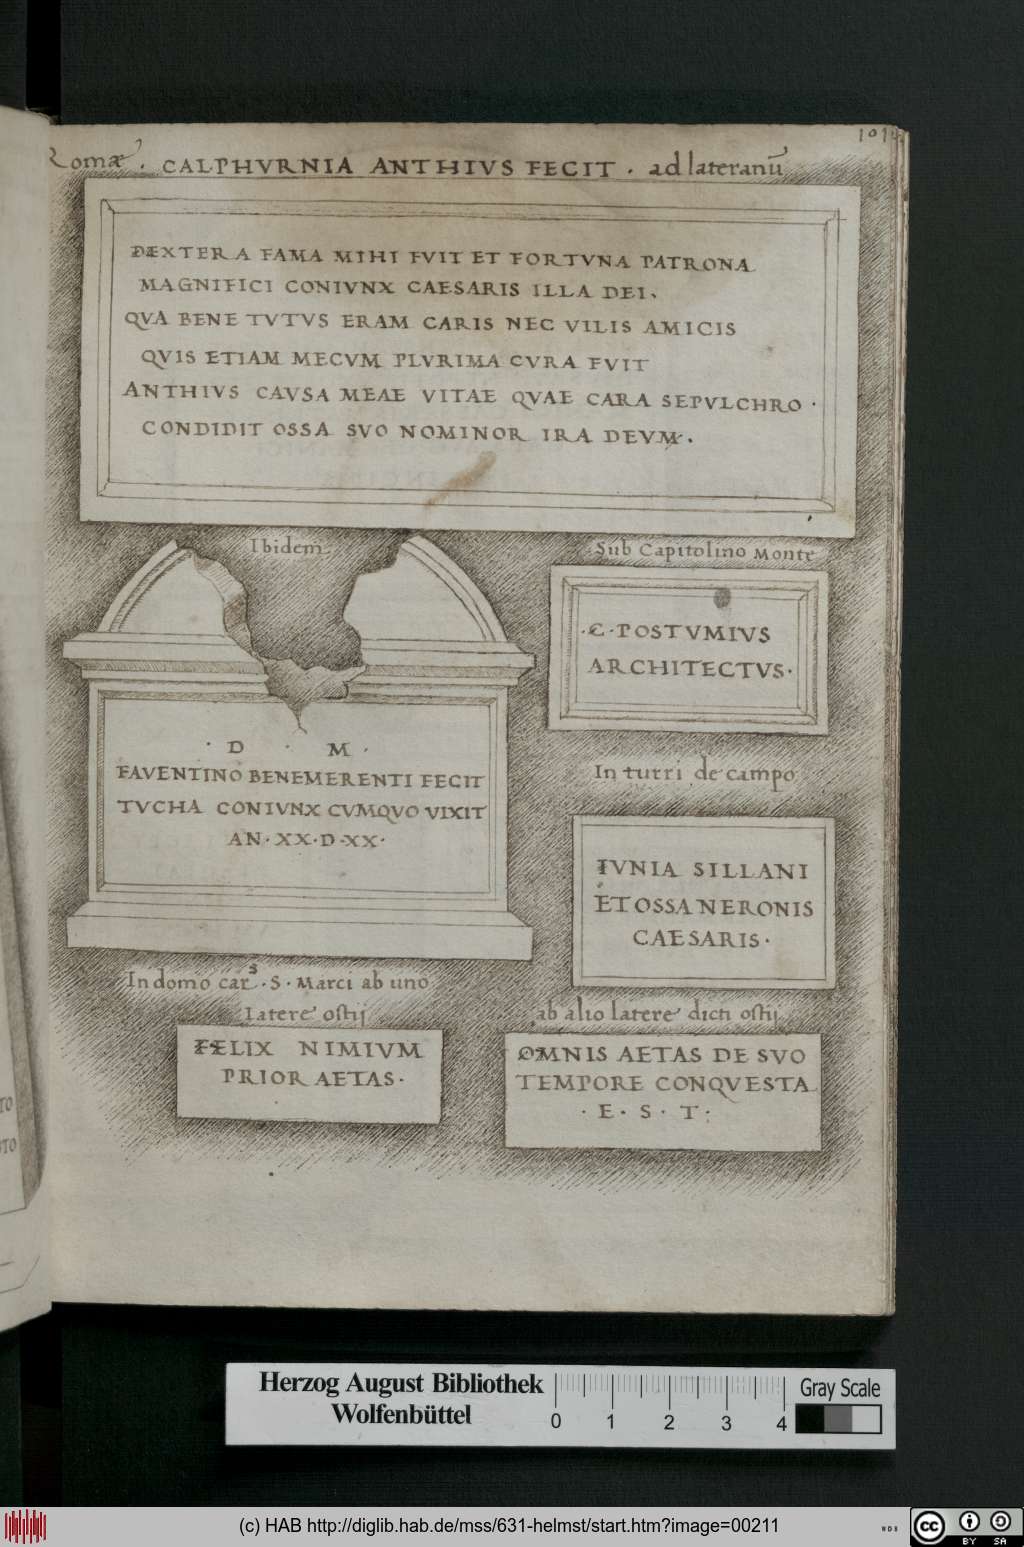 Romæ . CALPHVRNIA ANTHIVS FECIT . ad lateranū
DEXTERA FAMA MIHI FVIT ET FORTVNA PATRONA
MAGNIFICI CONIVNX CAESARIS ILLA DEI,
QVA BENE TVTVS ERAM CARIS NEC VILIS AMICIS
QVIS ETIAM MECVM PLVRIMA CVRA FVIT
ANTHIVS CAVSA MEAE VITAE QVAE CARA SEPVLCHRO ·
CONDIDIT OSSA SVO NOMINOR IRA DEVM .
Ibidem
· D · M ·
FAVENTINO BENEMERENTI FECIT
TVCHA CONIVNX CVMQVO VIXIT
AN · XX · D · XX ·
Sub Capitolino Monte
· C · POSTVMIVS
ARCHITECTVS ·
In turri de campo
IVNIA SILLANI
ET OSSA NERONIS
CAESARIS ·
In domo carˢ · S · Marci ab uno
latere ostij
FELIX NIMIVM
PRIOR AETAS ·
ab alio latere dicti ostij
OMNIS AETAS DE SVO
TEMPORE CONQVESTA
· E · S · T ·
TO
STO
Herzog August Bibliothek
Wolfenbüttel
0 1 2 3 4
Gray Scale
(c) HAB http://diglib.hab.de/mss/631-helmst/start.htm?image=00211
WDB
cc BY SA